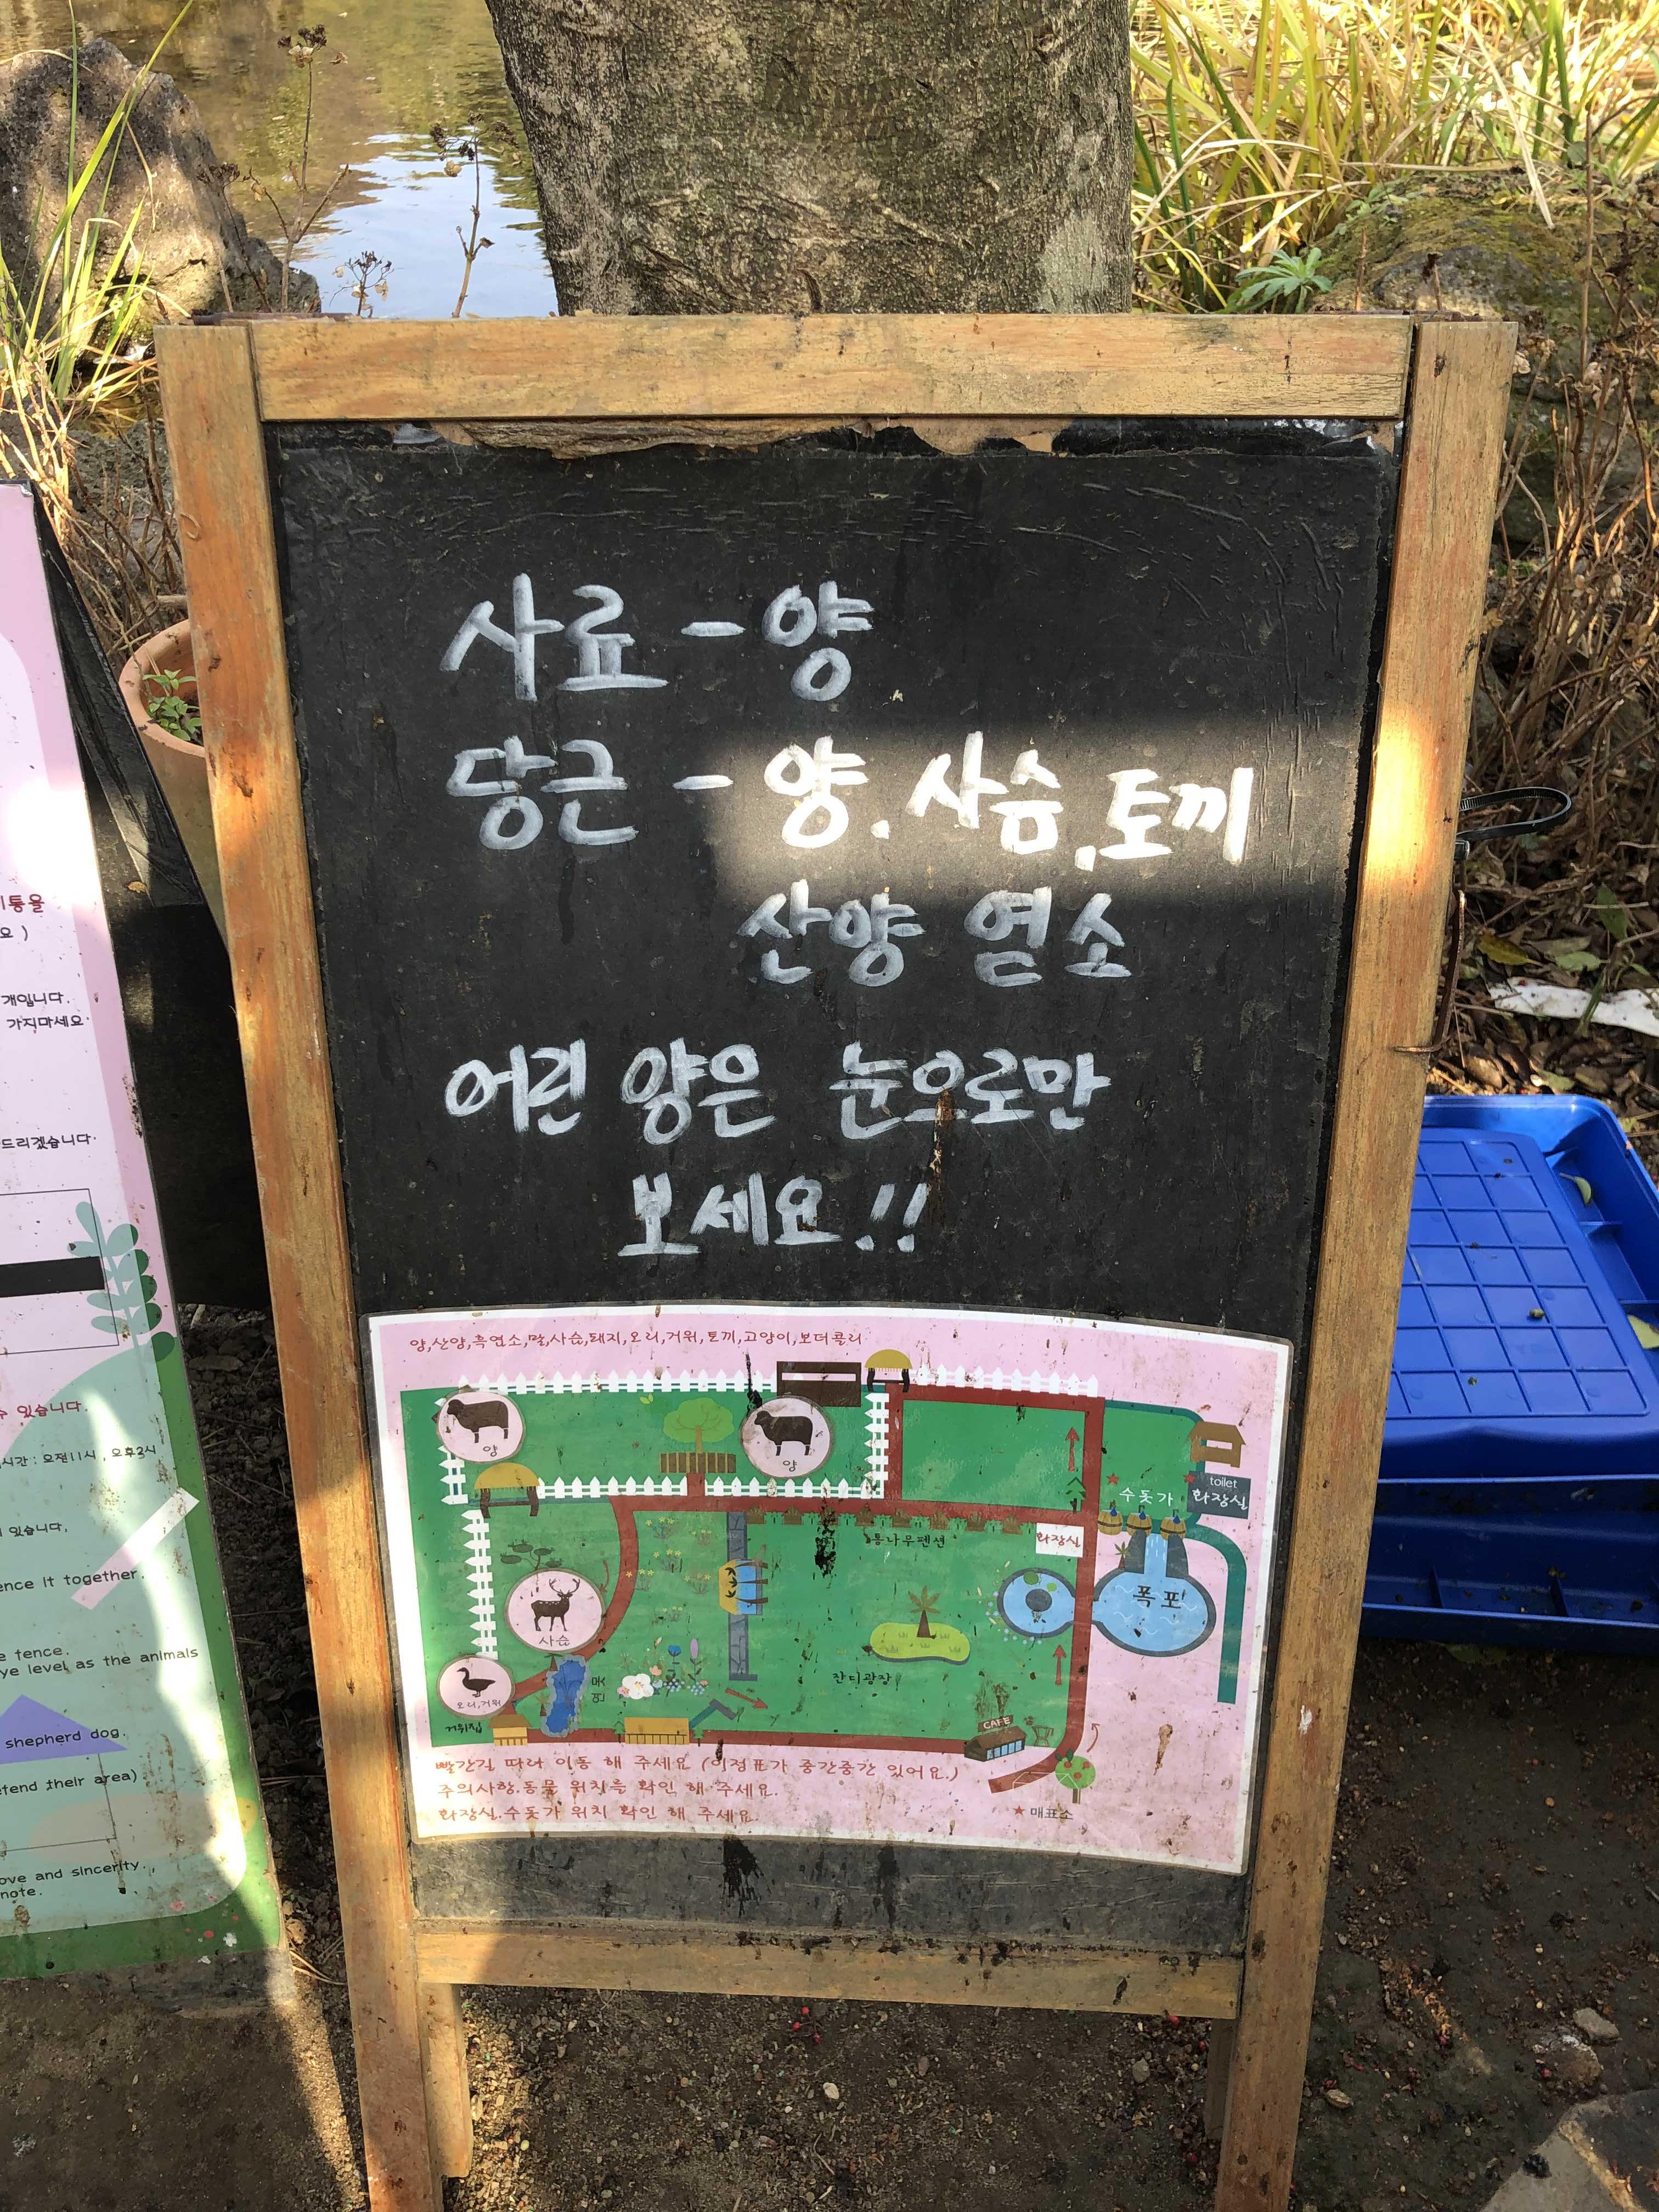 사료 - 양
당근 - 양. 사슴, 토끼
산양 염소
어린 양은 눈으로만
보세요!!
양,산양,흑염소,말,사슴,돼지,오리,거위,토끼,고양이,보더콜리
양
양
toilet
화장실
수돗가
통나무펜션
화장실
폭포
사슴
오리,거위
거위집
연못
잔디광장
CAFE
빨간길 따라 이동 해 주세요 (이정표가 중간중간 있어요.)
주의사항.동물 위치를 확인 해 주세요.
화장실.수돗가 위치 확인 해 주세요.
★ 매표소
개입니다.
가지마세요
드리겠습니다.
수 있습니다.
시간 : 오전11시 , 오후3시
있습니다.
ence it together.
e fence.
ye level as the animals
shepherd dog.
etend their area)
ove and sincerity.
note.